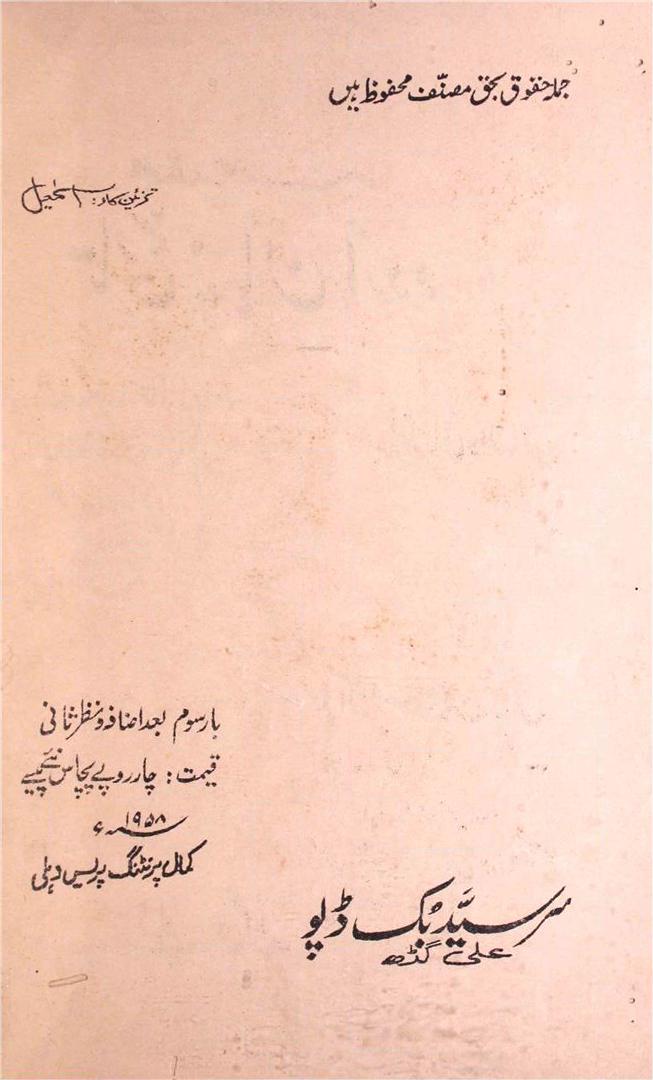 جملہ حقوق بحق مصنّف محفوظ ہیں
تزئین کار: اسمٰعیل
بار سوم بعد اضافہ و نظر ثانی
قیمت: چار روپے پچاس نئے پیسے
۱۹۵۸ء
کمال پرنٹنگ پریس دہلی
سر سیّد بُک ڈپو
علی گڈھ